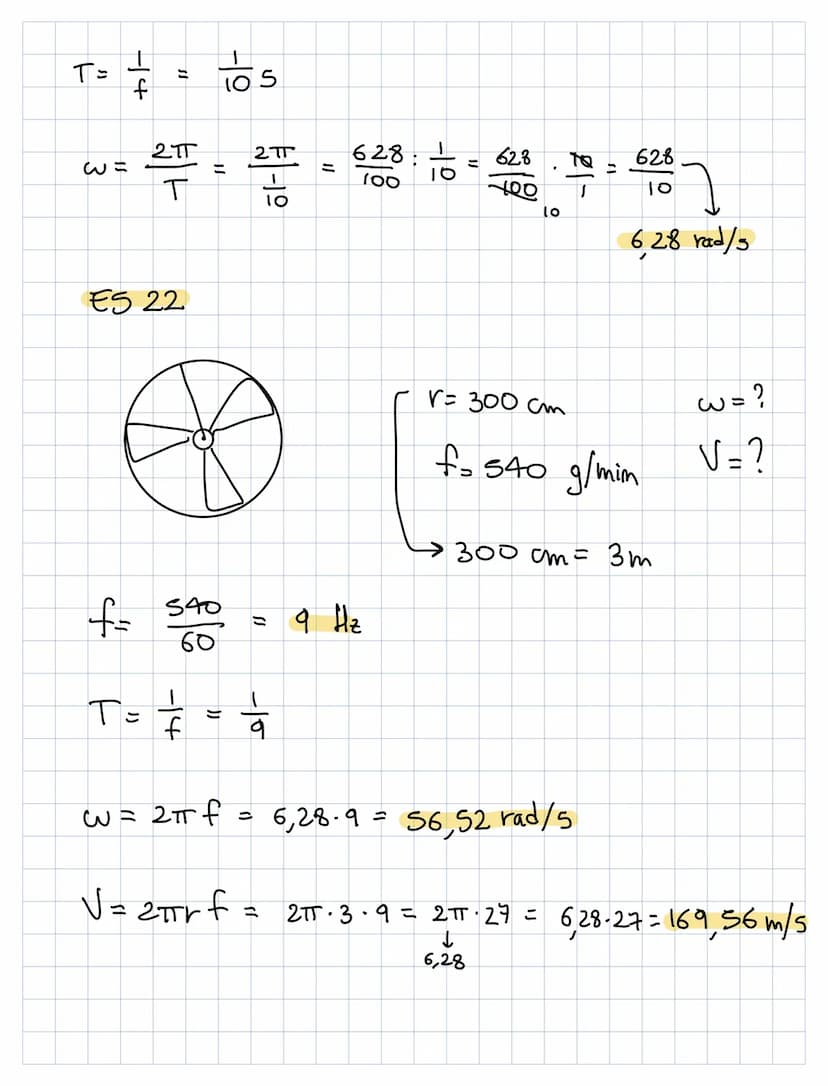 T= 1/f = 1/10 s
ω= 2π/T = 2π/(1/10) = 628/100 : 1/10 = 628/100 · 10/1 = 628/10
10
6,28 rad/s
ES 22
r= 300 cm ω=?
f= 540 g/min V=?
300 cm = 3m
f= 540/60 = 9 Hz
T= 1/f = 1/9
ω= 2πf = 6,28·9 = 56,52 rad/s
V= 2πrf = 2π·3·9 = 2π·27 = 6,28·27=169,56 m/s
6,28